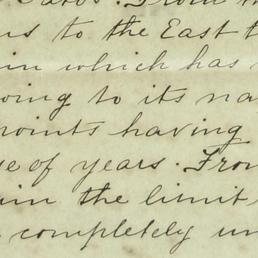 From
to the East
in which has
to its
points having
of years. From
the limit
completely un